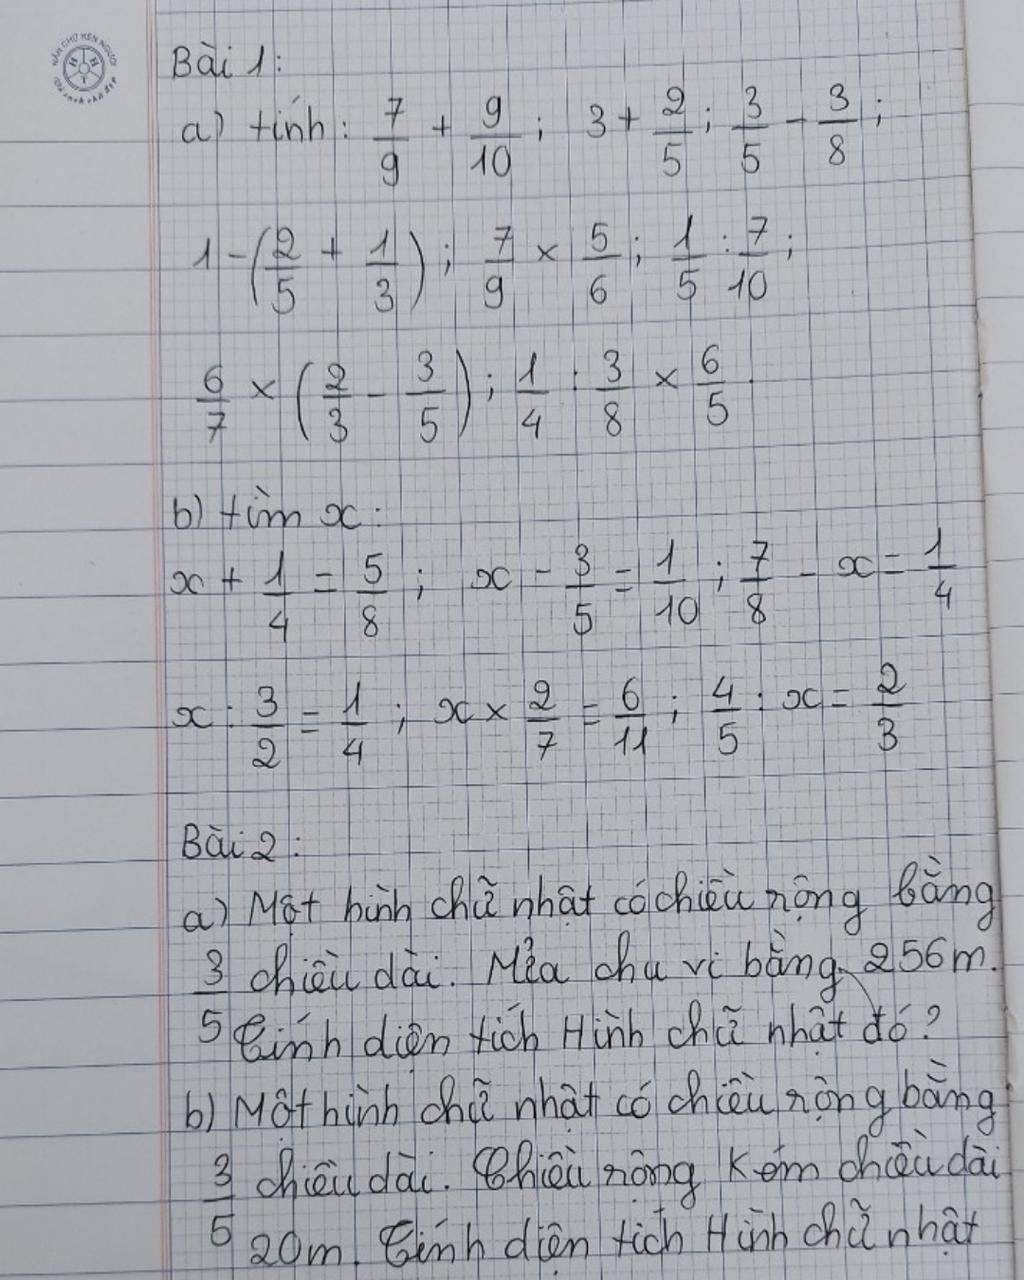 Bài 1:
a) tính: 7/9 + 9/10; 3 + 2/5; 3/5 - 3/8;
1 - (2/5 + 1/3); 7/9 × 5/6; 1/5 : 7/10;
6/7 × (2/3 - 3/5); 1/4 : 3/8 × 6/5
b) tìm x:
x + 1/4 = 5/8; x - 3/5 = 1/10; 7/8 - x = 1/4
x : 3/2 = 1/4; x × 2/7 = 6/11; 4/5 : x = 2/3
Bài 2:
a) Một hình chữ nhật có chiều rộng bằng
3/5 chiều dài. Nửa chu vi bằng 256m.
Tính diện tích Hình chữ nhật đó?
b) Một hình chữ nhật có chiều rộng bằng
3/5 chiều dài. Chiều rộng kém chiều dài
20m. Tính diện tích Hình chữ nhật